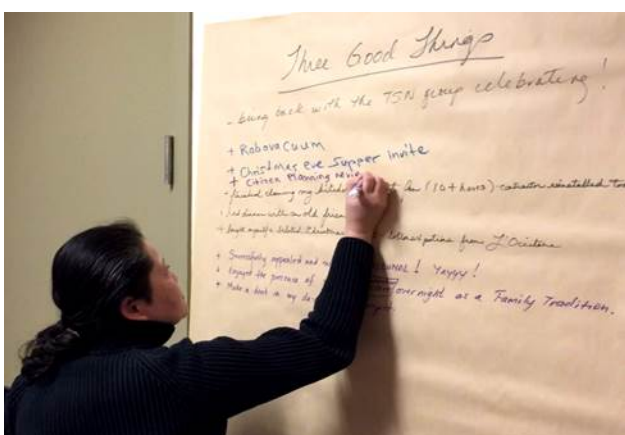 Three Good Things
- being back with the TSN group celebrating!
+ Robovacuum
+ Christmas eve Supper Invite
+ Citizen Planning revie
- finished cleaning my kitchen (10+ hours) reinstalled
dinner with an old frien
+ bought myself a belated Christmas from L'Occitane
+ Successfully appealed and ! Yayyy!
+ Enjoyed the presence of overnight as a Family Tradition.
+ Made a dent in my